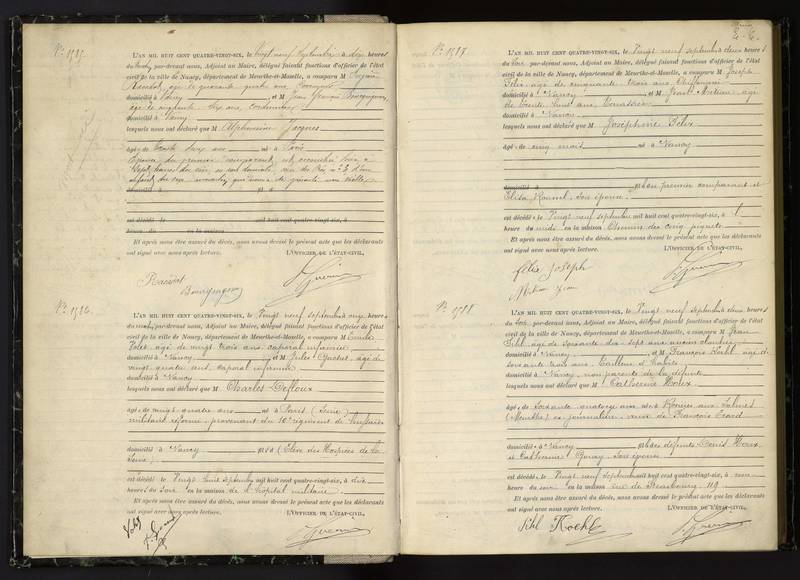 N° 1585.
L'AN MIL HUIT CENT QUATRE-VINGT-SIX, le vingt neuf Septembre à dix heures
du matin, par-devant nous, Adjoint au Maire, délégué faisant fonctions d'officier de l'état
civil de la ville de Nancy, département de Meurthe-et-Moselle, a comparu M
Racadot, âgé de quarante quatre ans
domicilié à Nancy et M Jean Bourguignon,
âgé de ans, cordonnier
domicilié à Nancy
lesquels nous ont déclaré que M Alphonsine Jacques
âgé de trente six ans né à Paris
Epouse du premier comparant, est accouchée hier à
sept heures du soir, en son domicile, rue
enfant du sexe masculin, qui
domicilié à
est décédé le mil huit cent quatre-vingt-six, à
heure du en la maison
Et après nous être assuré du décès, nous avons dressé le présent acte que les déclarants
ont signé avec nous après lecture. L'OFFICIER DE L'ÉTAT-CIVIL,
Racadot
Bourguignon
N° 1586.
L'AN MIL HUIT CENT QUATRE-VINGT-SIX, le Vingt neuf Septembre onze heures
du matin, par-devant nous, Adjoint au Maire, délégué faisant fonctions d'officier de l'état
civil de la ville de Nancy, département de Meurthe-et-Moselle, a comparu M Emile
âgé de vingt trois ans, caporal infirmier
domicilié à Nancy et M Jules âgé de
vingt quatre ans, caporal infirmier
domicilié à Nancy
lesquels nous ont déclaré que M Charles Defloux
âgé de vingt quatre ans né à Paris (Seine)
militaire réformé provenant du 10e régiment de hussards
domicilié à Nancy (Elève des Hospices de la
Seine)
est décédé le Vingt huit septembre mil huit cent quatre-vingt-six, à dix
heures du soir en la maison de l'hôpital militaire
Et après nous être assuré du décès, nous avons dressé le présent acte que les déclarants
ont signé avec nous après lecture. L'OFFICIER DE L'ÉTAT-CIVIL,
N° 1587
L'AN MIL HUIT CENT QUATRE-VINGT-SIX, le Vingt neuf septembre deux heures
du soir, par-devant nous, Adjoint au Maire, délégué faisant fonctions d'officier de l'état
civil de la ville de Nancy, département de Meurthe-et-Moselle, a comparu M Joseph
Felix, âgé de cinquante trois ans, Chiffonnier
domicilié à Nancy et M Jean Metian, âgé
de trente huit ans, Terrassier
domicilié à Nancy
lesquels nous ont déclaré que M Joséphine Félix
âgé de cinq mois né à Nancy
domicilié à fils du premier comparant et
Elisa Roussel, son épouse
est décédé le Vingt neuf septembre mil huit cent quatre-vingt-six, à 1
heure du midi en la maison Chemin des cinq piquets
Et après nous être assuré du décès, nous avons dressé le présent acte que les déclarants
ont signé avec nous après lecture. L'OFFICIER DE L'ÉTAT-CIVIL,
félix Joseph
Metian Jean
N° 1588
L'AN MIL HUIT CENT QUATRE-VINGT-SIX, le Vingt neuf septembre deux heures
du soir, par-devant nous, Adjoint au Maire, délégué faisant fonctions d'officier de l'état
civil de la ville de Nancy, département de Meurthe-et-Moselle, a comparu M Jean
Sihl, âgé de soixante dix sept ans, ancien
domicilié à Nancy et M François Koehl, âgé de
soixante trois ans, Tailleur d'habits
domicilié à Nancy, non parents de la défunte
lesquels nous ont déclaré que M Catherine Houx
âgé de soixante quatorze ans né à Rosières aux Salines
(Meurthe) ex journalière, veuve de François Evard
domicilié à Nancy fils des défunts Denis Houx
et Catherine son épouse
est décédé le Vingt neuf septembre mil huit cent quatre-vingt-six, à une
heure du soir en la maison rue de Strasbourg, 119
Et après nous être assuré du décès, nous avons dressé le présent acte que les déclarants
ont signé avec nous après lecture. L'OFFICIER DE L'ÉTAT-CIVIL,
Sihl Koehl